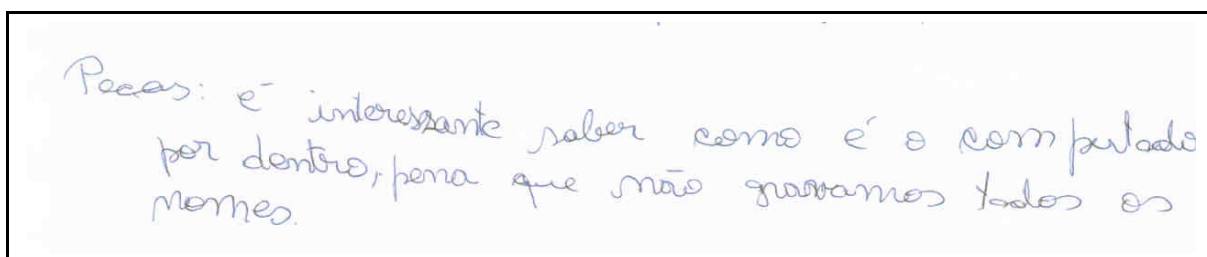 Pecas: é interessante saber como é o computado
por dentro, pena que não gravamos todos os
nomes.